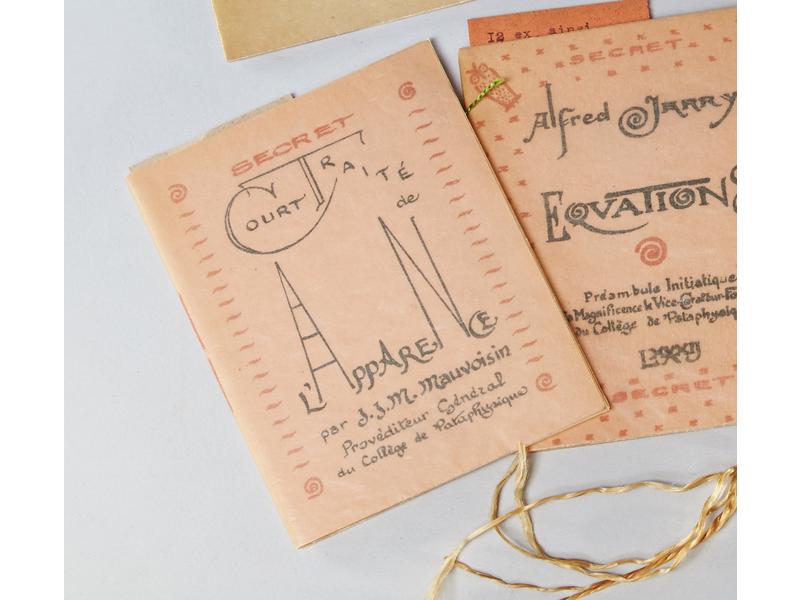 SECRET
COURT TRAITÉ
de
L'APPARENCE
par J.J.M. Mauvoisin
Provéditeur Général
du Collège de Pataphysique
12 ex. ainsi
SECRET
Alfred Jarry
EQVATIONS
Préambule Initiatique
Magnificence le Vice-Curateur-Fon
du Collège de Pataphysiq
LXXXII
SECRET